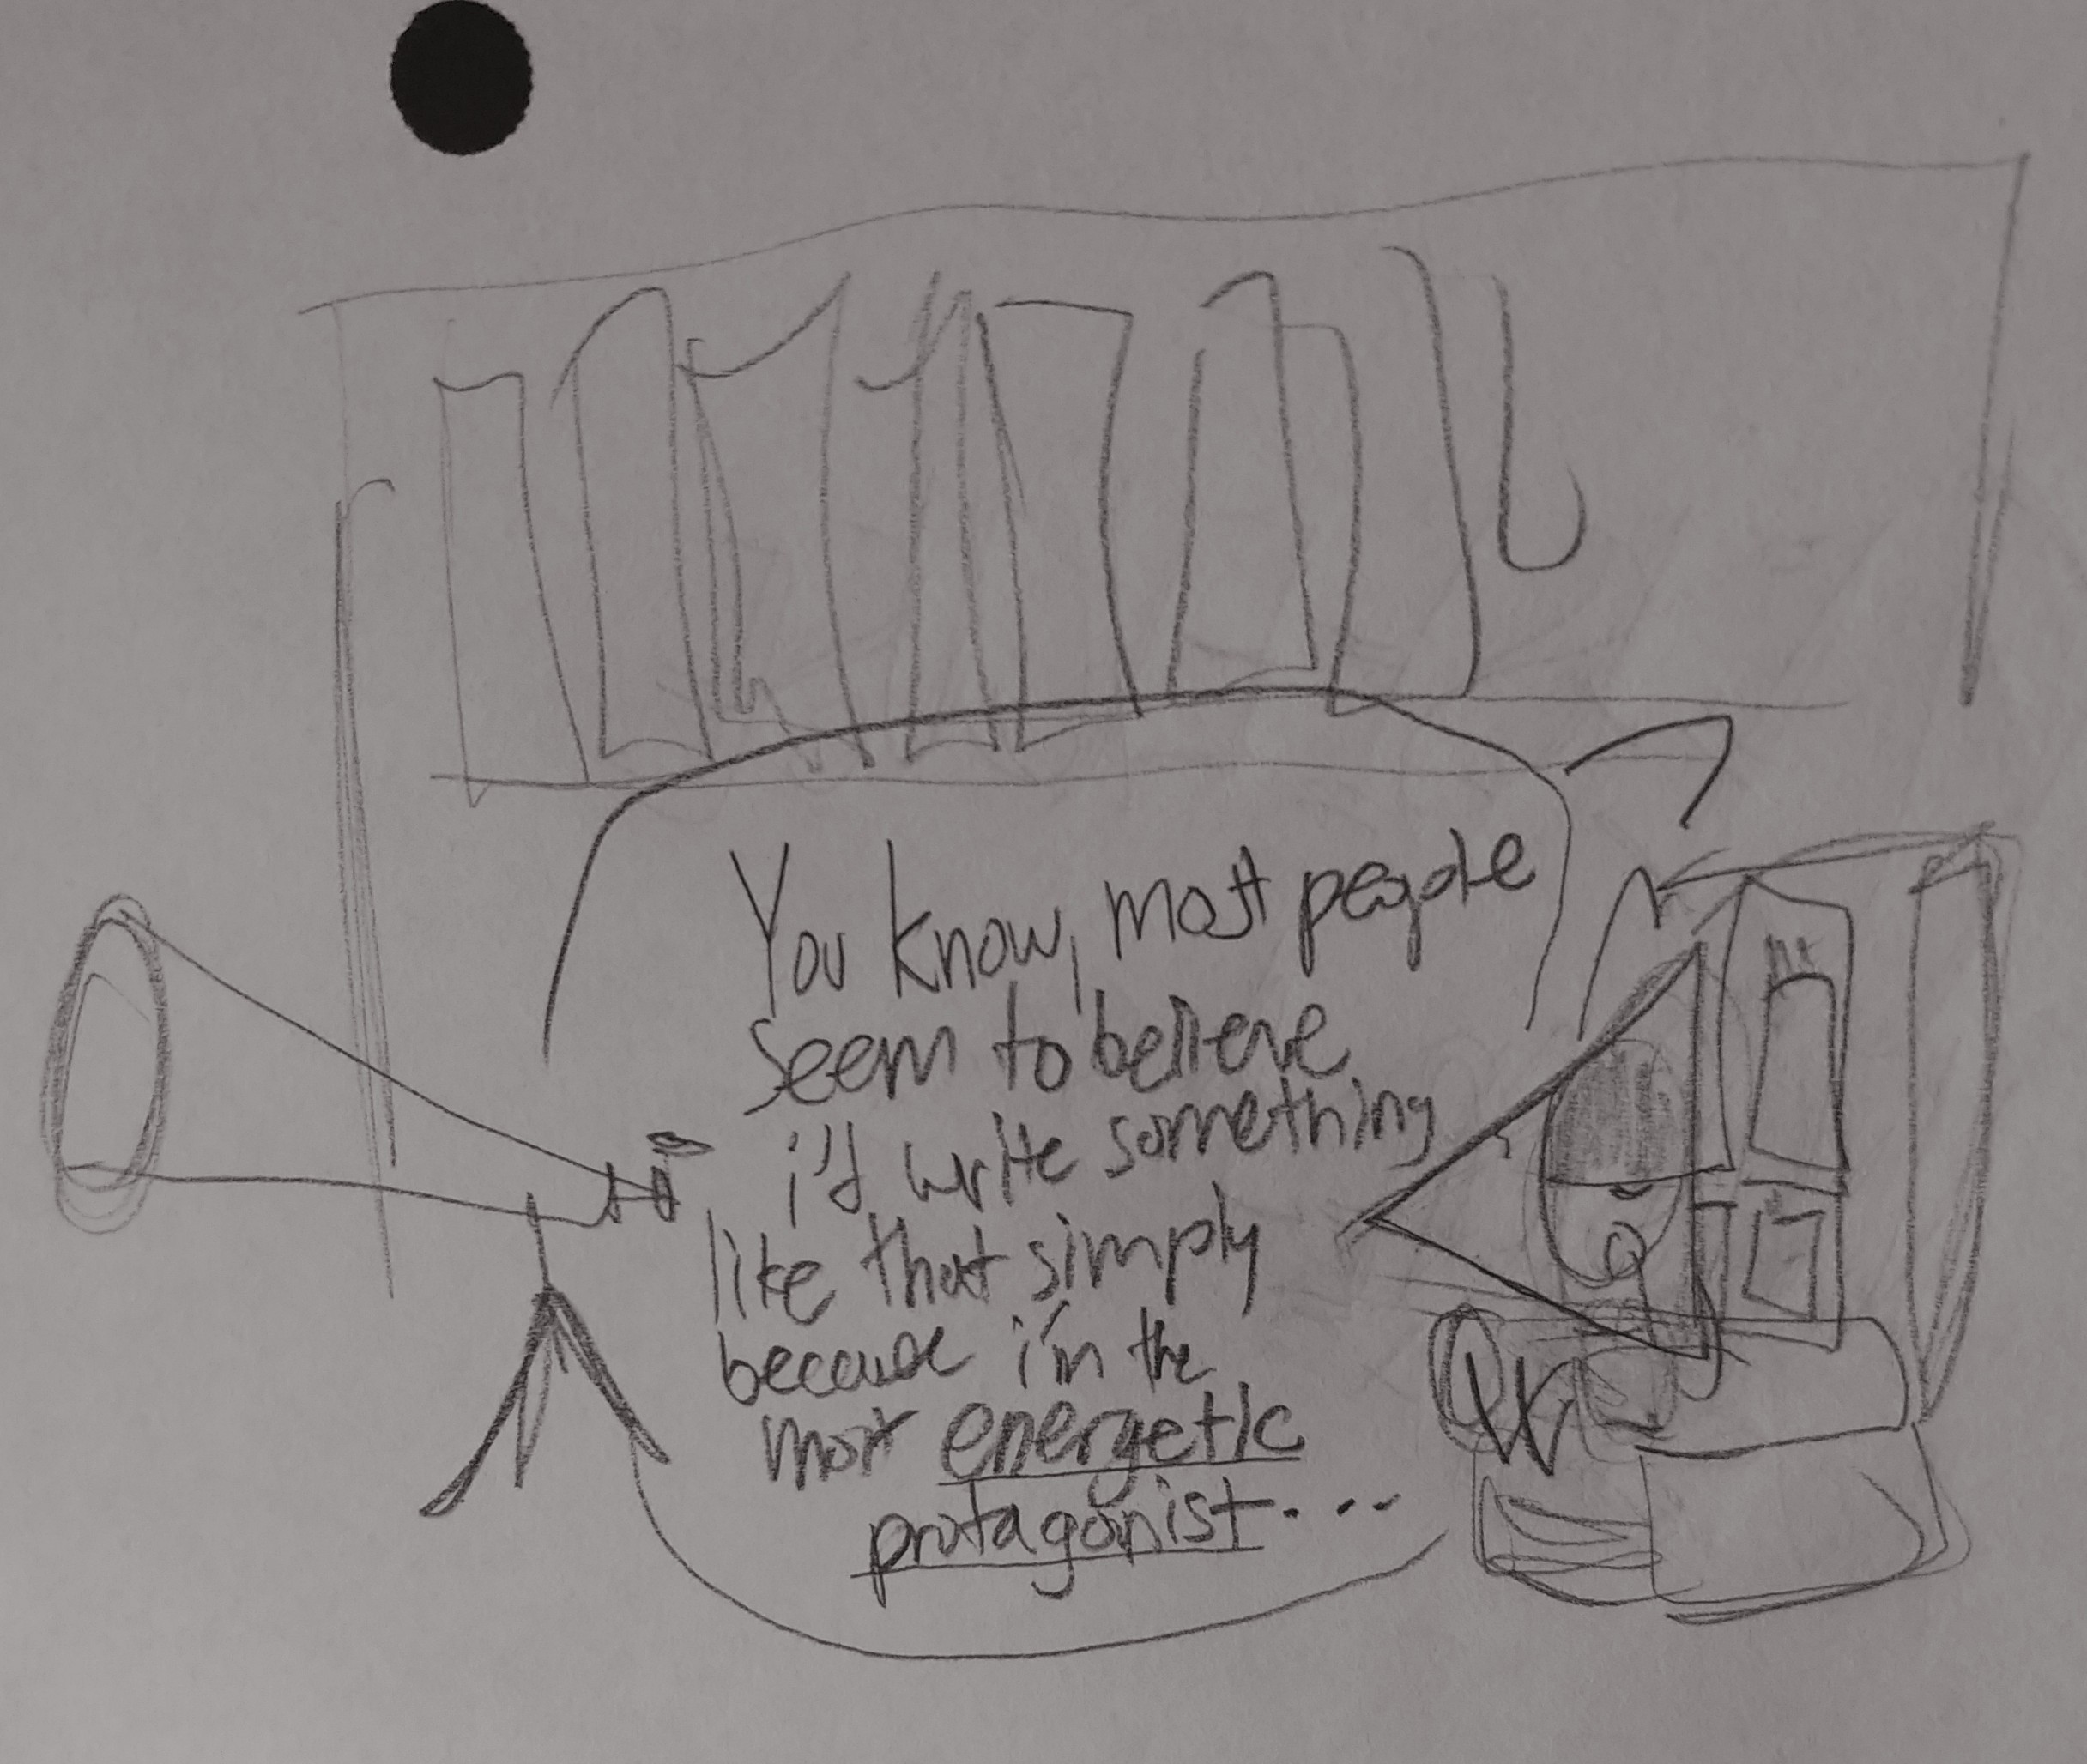 You know, most people
seem to believe
i'd write something
like that simply
because i'm the
most energetic
protagonist...